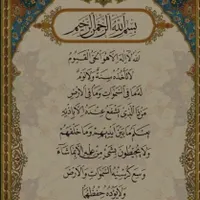 بسم الله الرحمن الرحيم
الله لا إله إلا هو الحي القيوم
لا تأخذه سنة ولا نوم
له ما في السموات وما في الأرض
من ذا الذي يشفع عنده إلا بإذنه
يعلم ما بين أيديهم وما خلفهم
ولا يحيطون بشيء من علمه إلا بما شاء
وسع كرسيه السموات والأرض
ولا يؤده حفظهما